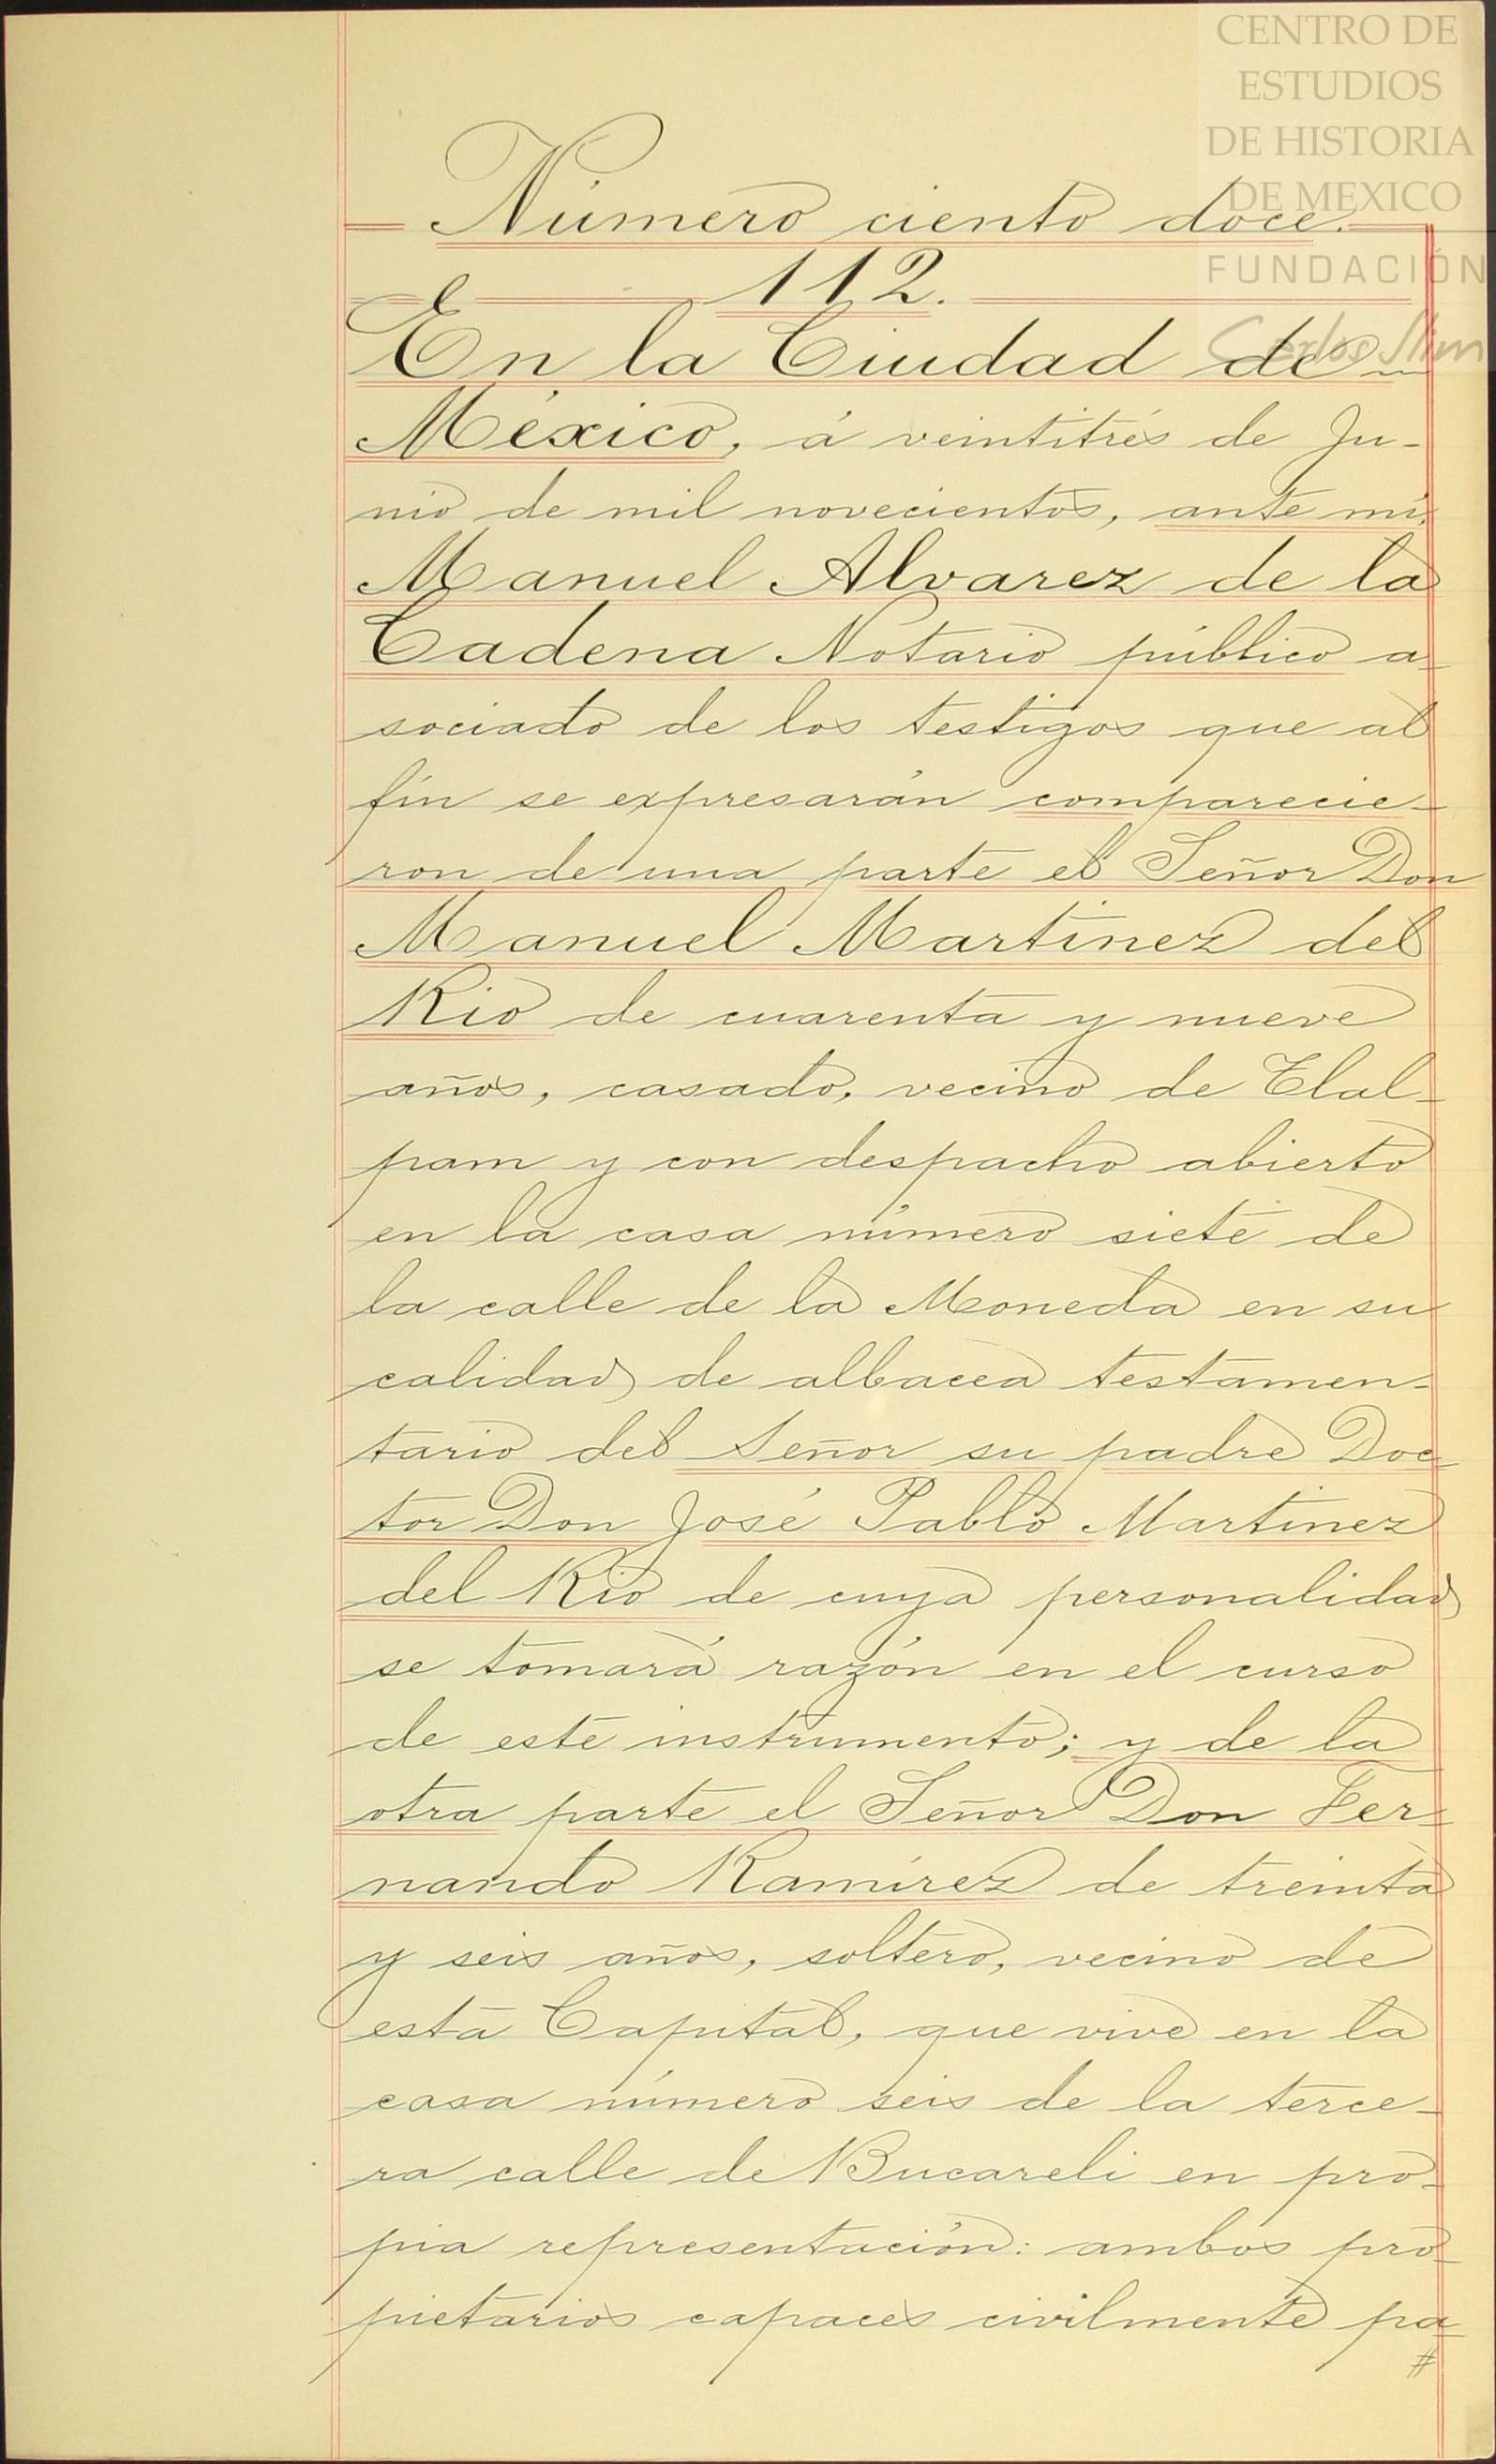 CENTRO DE
ESTUDIOS
DE HISTORIA
DE MEXICO
FUNDACIÓN
Carlos Slim
Número ciento doce.
112.
En la Ciudad de
México, á veintitrés de Ju-
nio de mil novecientos, ante mí,
Manuel Alvarez de la
Cadena Notario público a-
sociado de los testigos que al
fin se expresarán comparecie-
ron de una parte el Señor Don
Manuel Martinez del
Rio de cuarenta y nueve
años, casado, vecino de Tlal-
pam y con despacho abierto
en la casa número siete de
la calle de la Moneda en su
calidad de albacea testamen-
tario del Señor su padre Doc-
tor Don José Pablo Martinez
del Rio de cuya personalidad
se tomará razón en el curso
de este instrumento; y de la
otra parte el Señor Don Fer-
nando Ramírez de treinta
y seis años, soltero, vecino de
esta Capital, que vive en la
casa número seis de la terce-
ra calle de Bucareli en pro-
pia representación: ambos pro-
pietarios capaces civilmente pa-
#